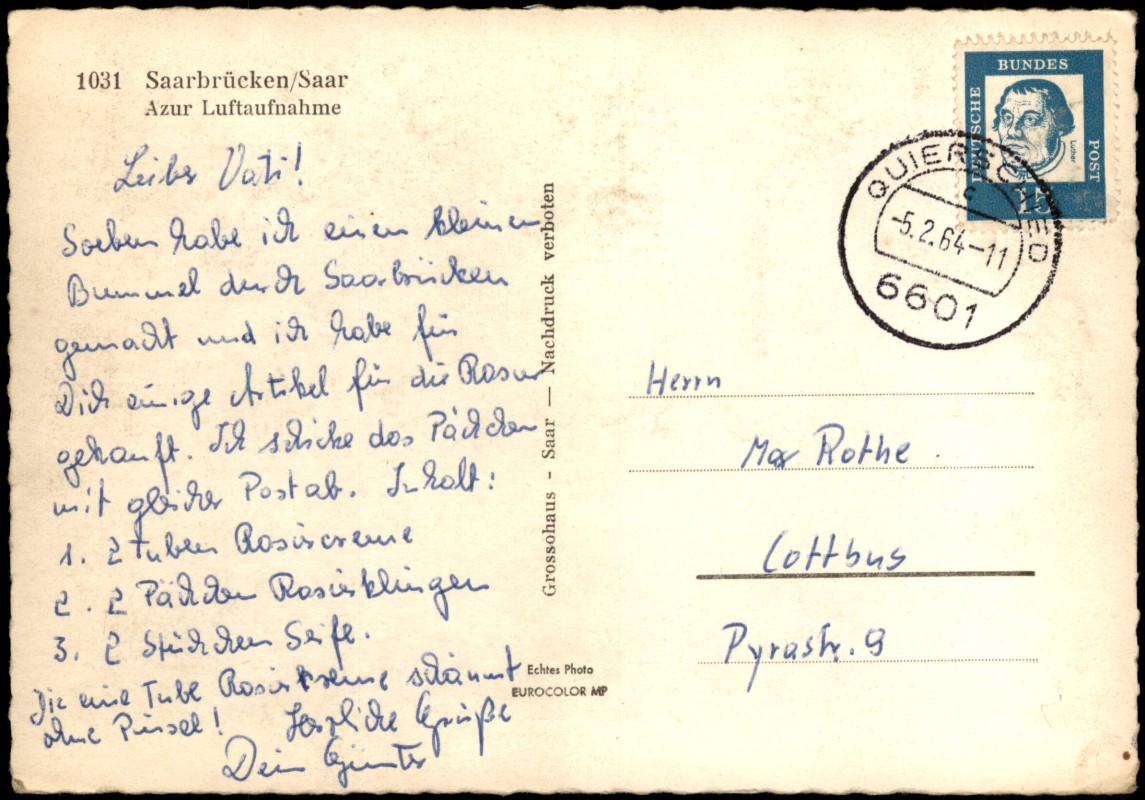 1031 Saarbrücken/Saar
Azur Luftaufnahme
Lieber Vati!
Soeben habe ich einen kleinen
Bummel durch Saarbrücken
gemacht und ich habe für
Dich einige Artikel für die Rasur
gekauft. Ich schicke das Päckchen
mit gleicher Post ab. Inhalt:
1. 2 Tuben Rasiercreme
2. 2 Päckchen Rasierklingen
3. 2 Stückchen Seife.
Die eine Tube Rasiercreme schäumt
ohne Pinsel! Herzliche Grüße
Dein Günter
Grossohaus - Saar — Nachdruck verboten
Echtes Photo
EUROCOLOR MP
DEUTSCHE
BUNDES
POST
Luther
15
QUIERSCHIED
c
-5.2.64-11
6601
Herrn
Max Rothe
Cottbus
Pyrastr. 9